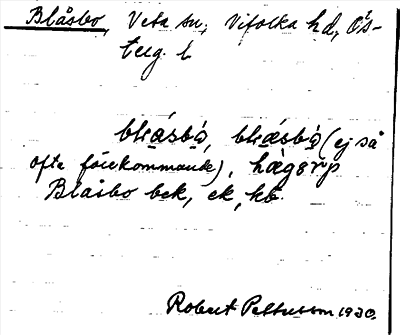 Blåsbo, Veta sn, Vifolka hd, Ös-
terg. l.
blåsbó, blåsbó (ej så
ofte förekommande), hågerp
Blåsbo bek, ek, kb.
Robert Pettersson 1930.